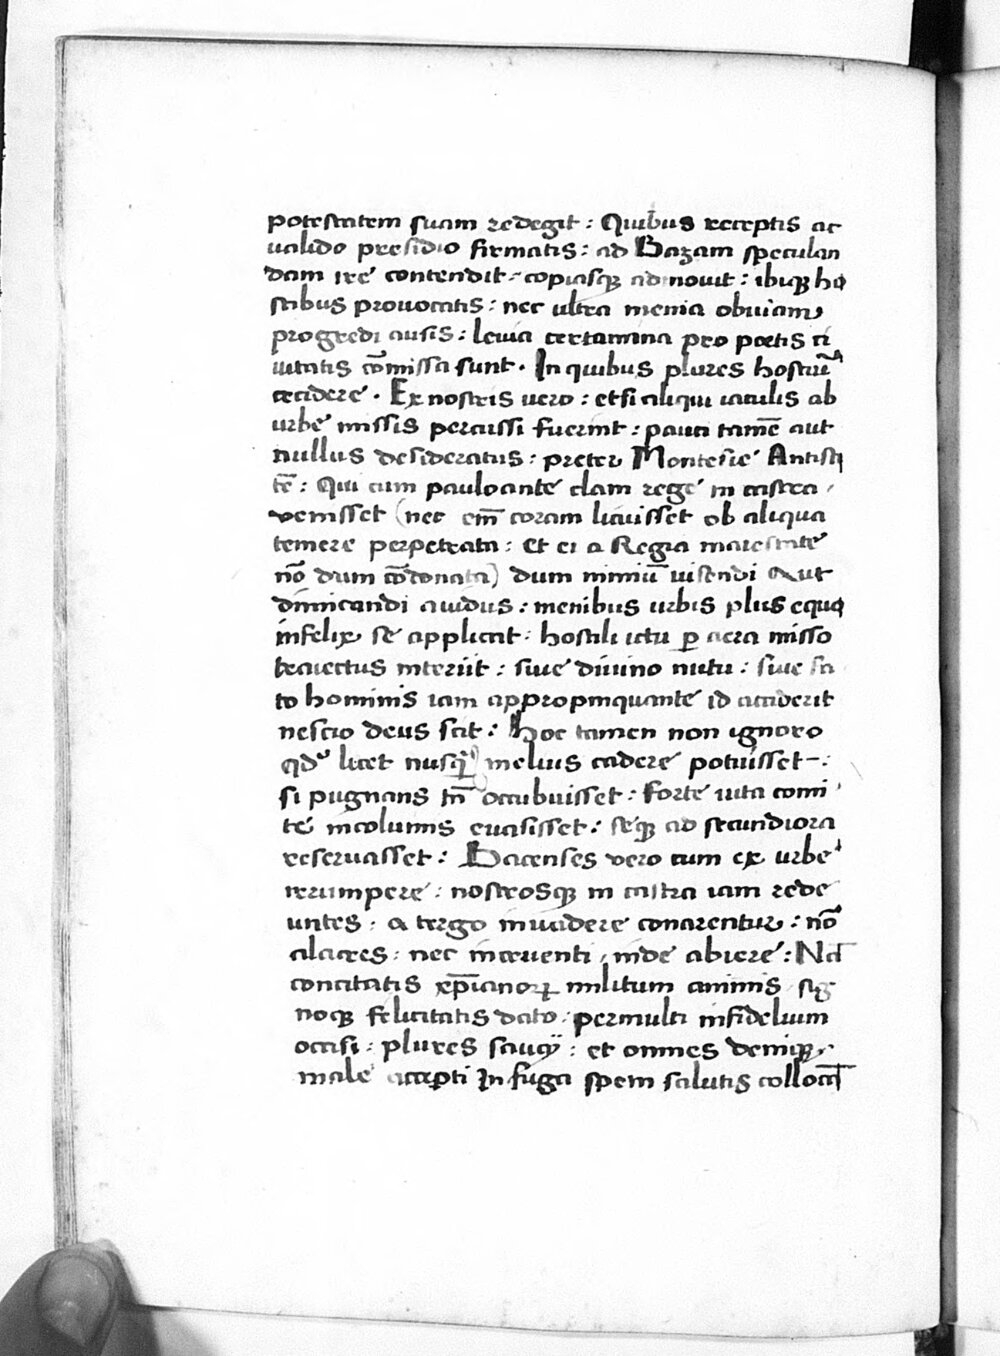 potestatem suam redegit : Quibus receptis ac
ualido presidio firmatis : ad Bazam speculan
dam ire contendit copiasq₃ admouit : ibiq₃ ho
stibus prouocatis : nec ultra menia obuiam
progredi ausis : leuia certamina pro portis ci
uitatis com̄issa sunt . In quibus plures hostiū
cecidere . Ex nostris uero : etsi aliqui iaculis ab
urbe missis percussi fuerint : pauci tamē aut
nullus desideratus : preter Montesie Antisti
tē : Qui cum pauloante clam rege in castra
venisset (nec em̄ coram licuisset ob aliqua
temere perpetrata : Et ei a Regia maiestate
nō dum cōdonata) dum nimiū uisendi Aut
dimicandi auidus : menibus urbis plus equo
infelix se applicat : hostili ictu p aera misso
traiectus interiit : siue diuino nutu : siue fa
to hominis iam appropinquante id acciderit
nescio deus scit : Hoc tamen non ignoro
qd' licet nusq̄ melius cadere potuisset :
si pugnans tn̄ occubuisset : forte uita comi
te incolumis euasisset : seq₃ ad secundiora
reseruasset : Bacenses vero cum ex urbe
irrumpere : nostrosq₃ in castra iam rede
untes : a tergo inuadere conarentur : nō
alacres : nec incruenti , inde abiere : Nā
concitatis xp̄ianoꝝ militum animis sig
noq₃ felicitatis dato : permulti infidelium
occisi : plures saucij : et omnes deniq₃
male accepti In fuga spem salutis collocāt